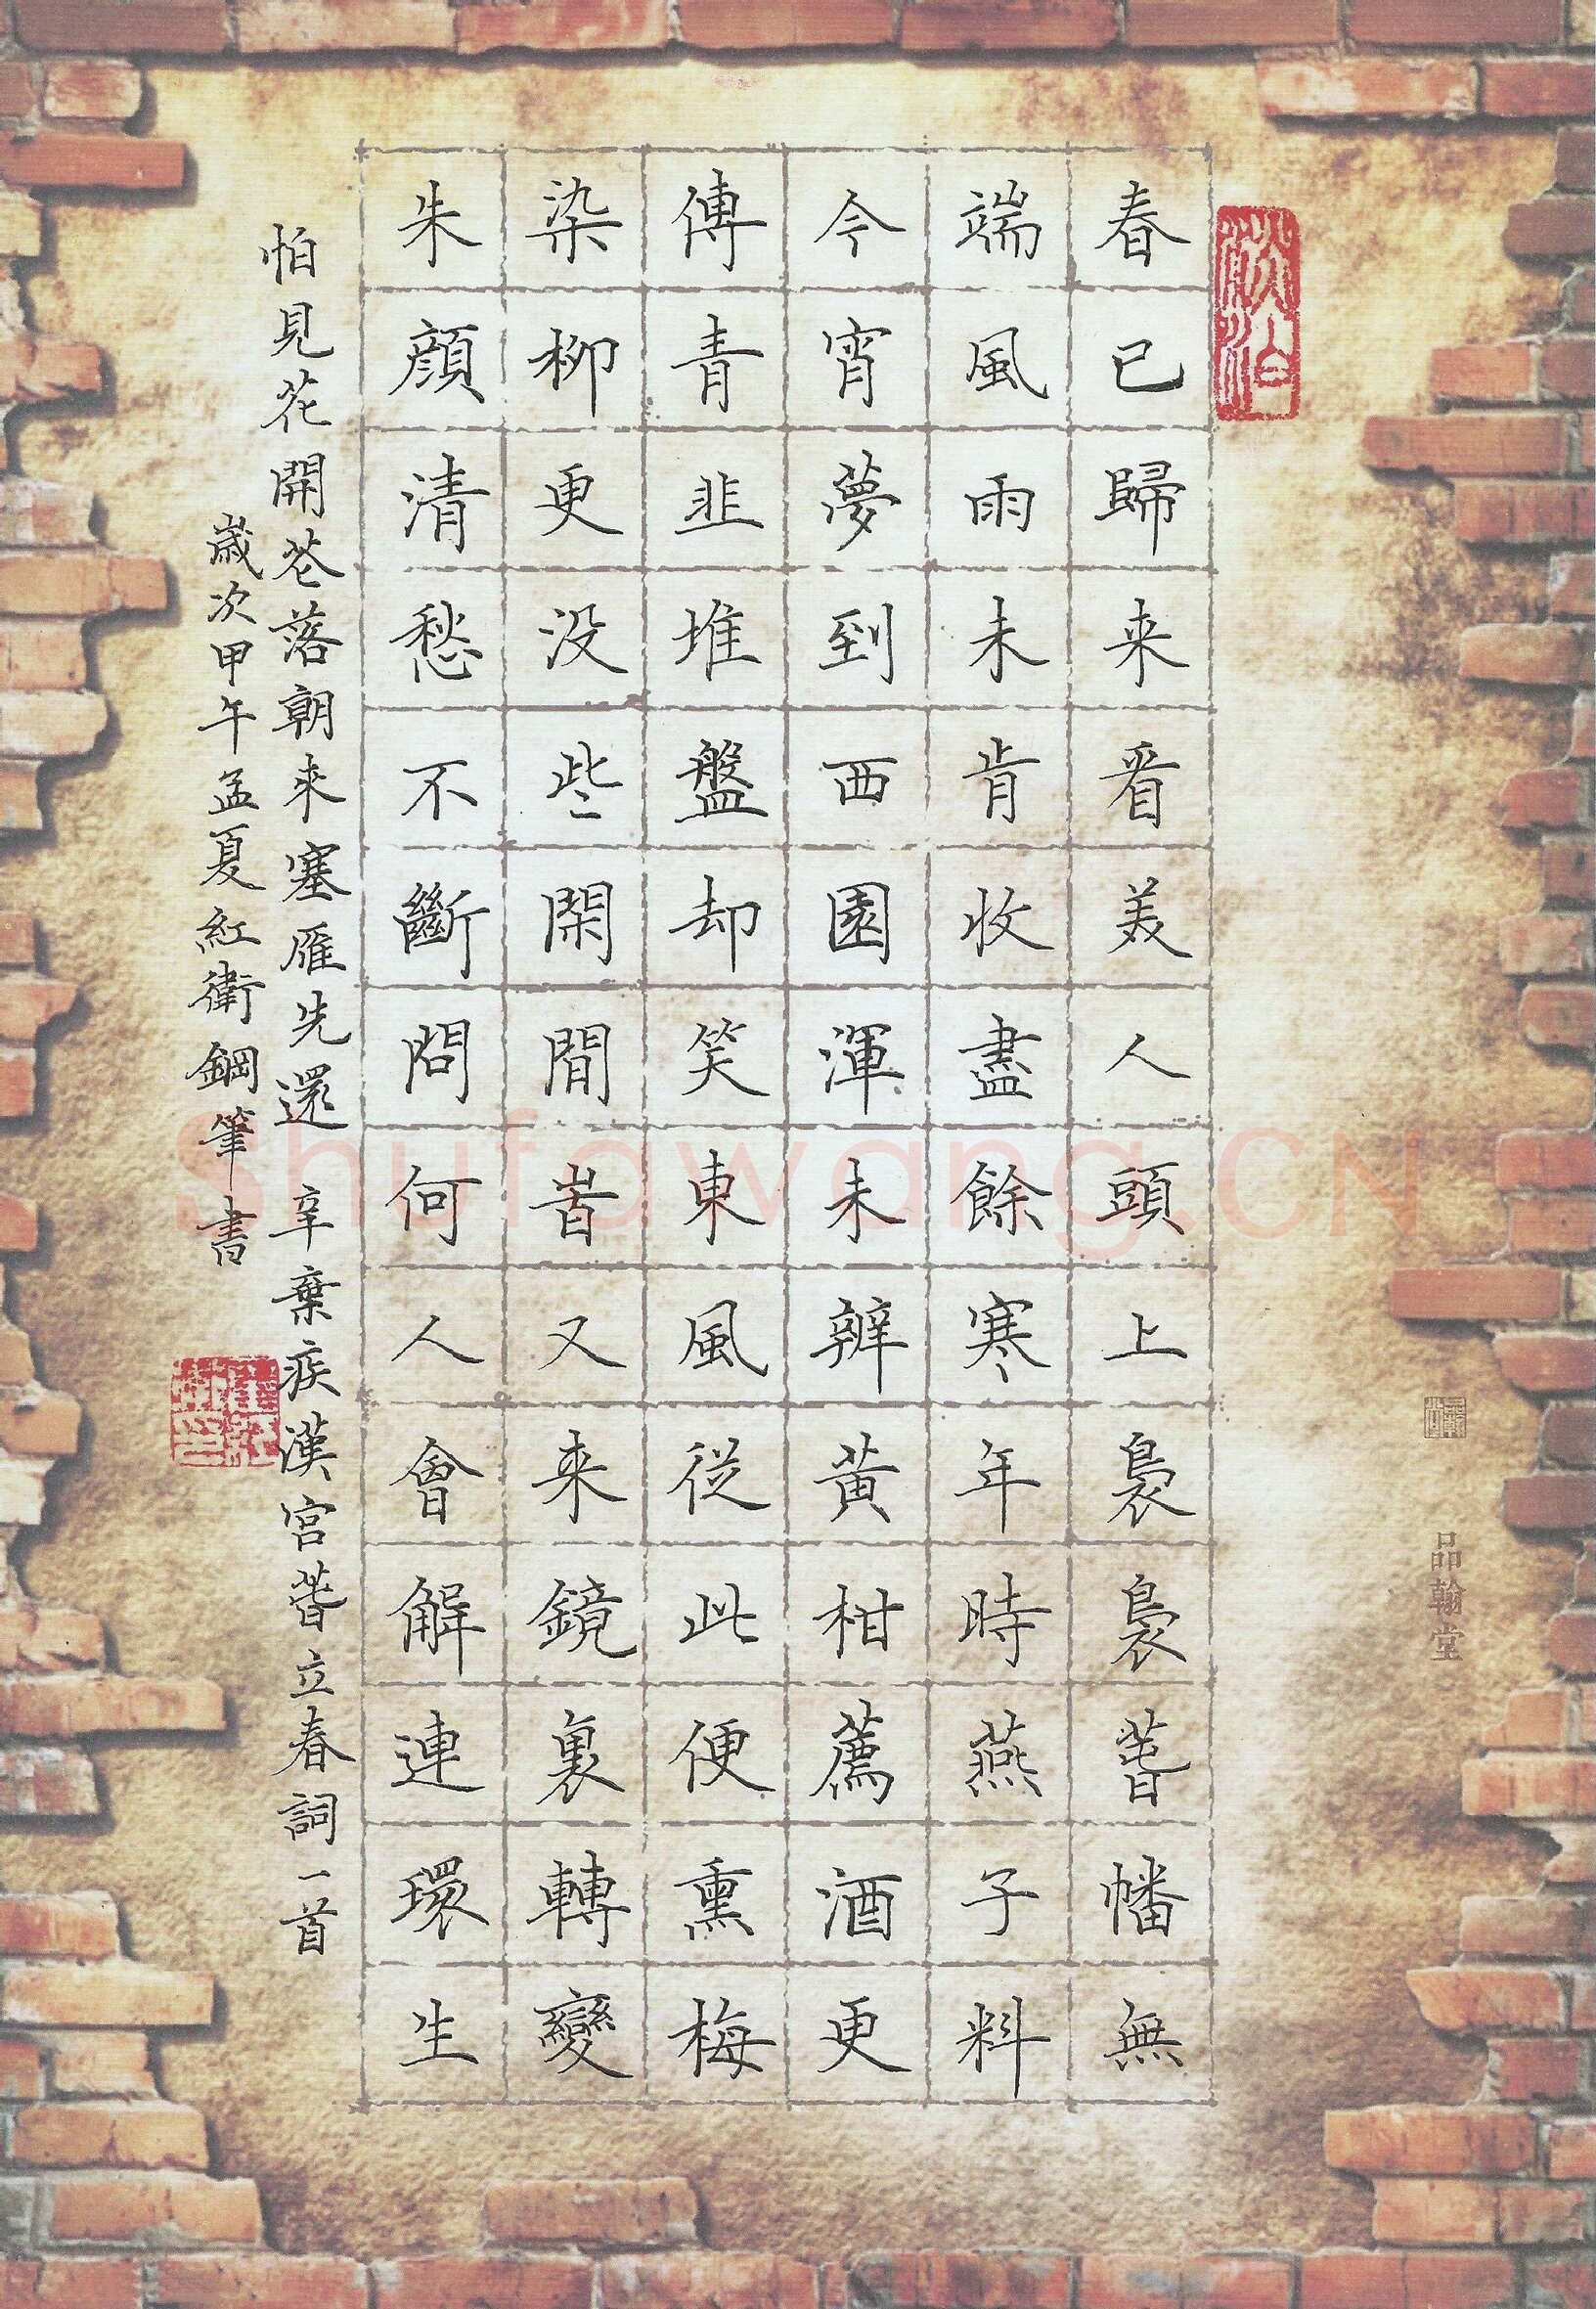 春已歸来看美人頭上裊裊萅幡無
端風雨未肯收盡餘寒年時燕子料
今宵夢到西園渾未辨黃柑薦酒更
傳青韭堆盤却笑東風從此便熏梅
染柳更没些閑間旹又来鏡裏轉變
朱顔清愁不斷問何人會解連環生
怕見花開苍落朝來塞雁先還 辛棄疾漢宮萅立春詞一首
歲次甲午孟夏紅衛鋼筆書
品翰堂
Shufawang.CN